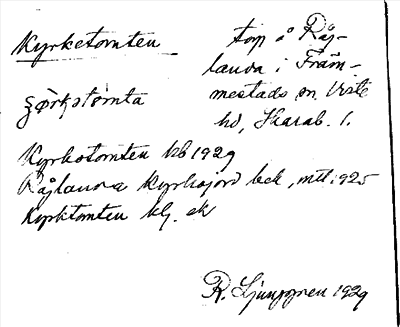 Kyrketomten
torp å Råg-
landa i Främ-
mestads sn, Viste
hd, Skarab. l.
Kyrkotomten kb 1929
Råglanda kyrkojord bek, mtl 1925
Kyrktomten kg. ek
R. Ljunggren 1929